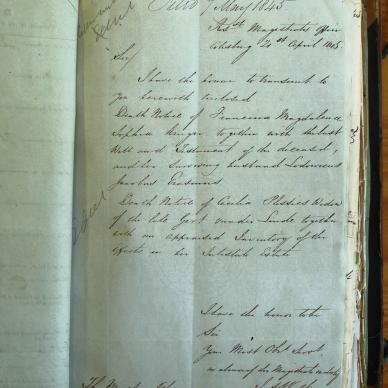 7 May 1845
Res^t Magistrates Office
Colesberg 20th April 1845
Sir
I have the honor to transmit to
you herewith enclosed
Death Notice of Francina Magdalena
Sophia Kruger together with the last
Will and Testament of the deceased,
and her surviving husband Lodewicus
Jacobus Erasmus
Death Notice of Cecilia Plessis Widow
of the late Gert van der Linde together
with an appraised Inventory of the
effects in her Intestate Estate
I have the honor to be
Sir
Your Most Obt Servt
in absence of the Magistrate on duty